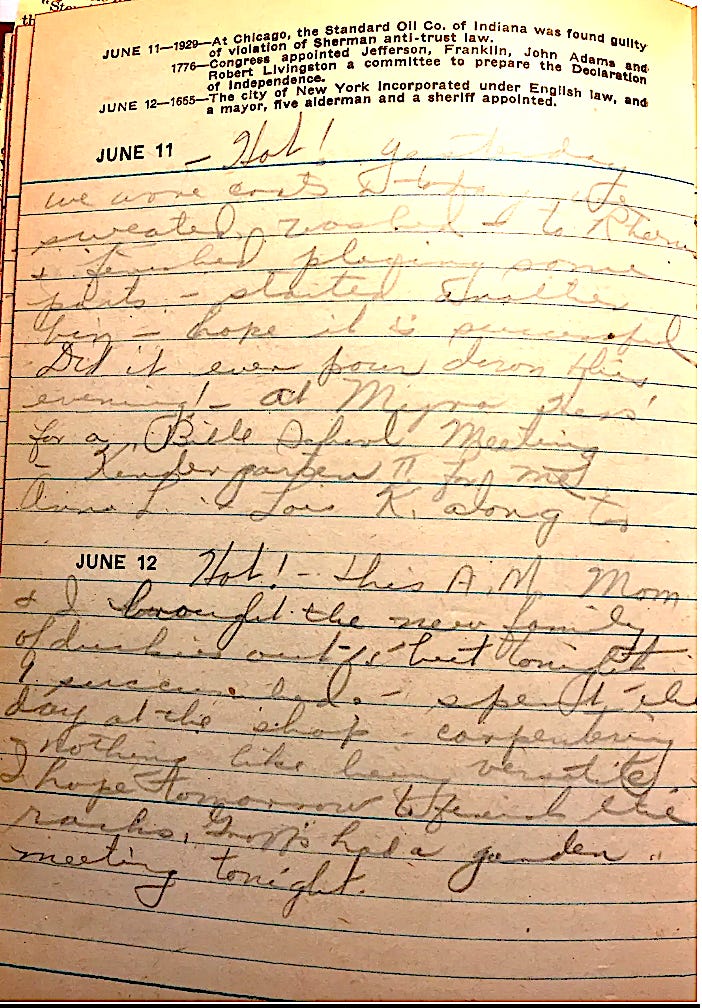 JUNE 11—1929—At Chicago, the Standard Oil Co. of Indiana was found guilty
of violation of Sherman anti-trust law.
1776—Congress appointed Jefferson, Franklin, John Adams and
Robert Livingston a committee to prepare the Declaration
of Independence.
JUNE 12—1665—The city of New York incorporated under English law, and
a mayor, five alderman and a sheriff appointed.
JUNE 11 - Hot! yesterday
we wore coats & today we
sweated, washed & to
& finished some
parts - started another
bin - hope it is successful
Did it ever pour down this
evening! - at Hess'
for a Bible School Meeting
- Kindergarten II for me,
Anna L. Lois K. along to
JUNE 12 Hot! - this A.M. Mom
& I brought the new family
of duckies out but tonight
spent the
day at the shop - carpentering
nothing like being versatile
I hope tomorrow to finish the
racks. had a garden
meeting tonight.